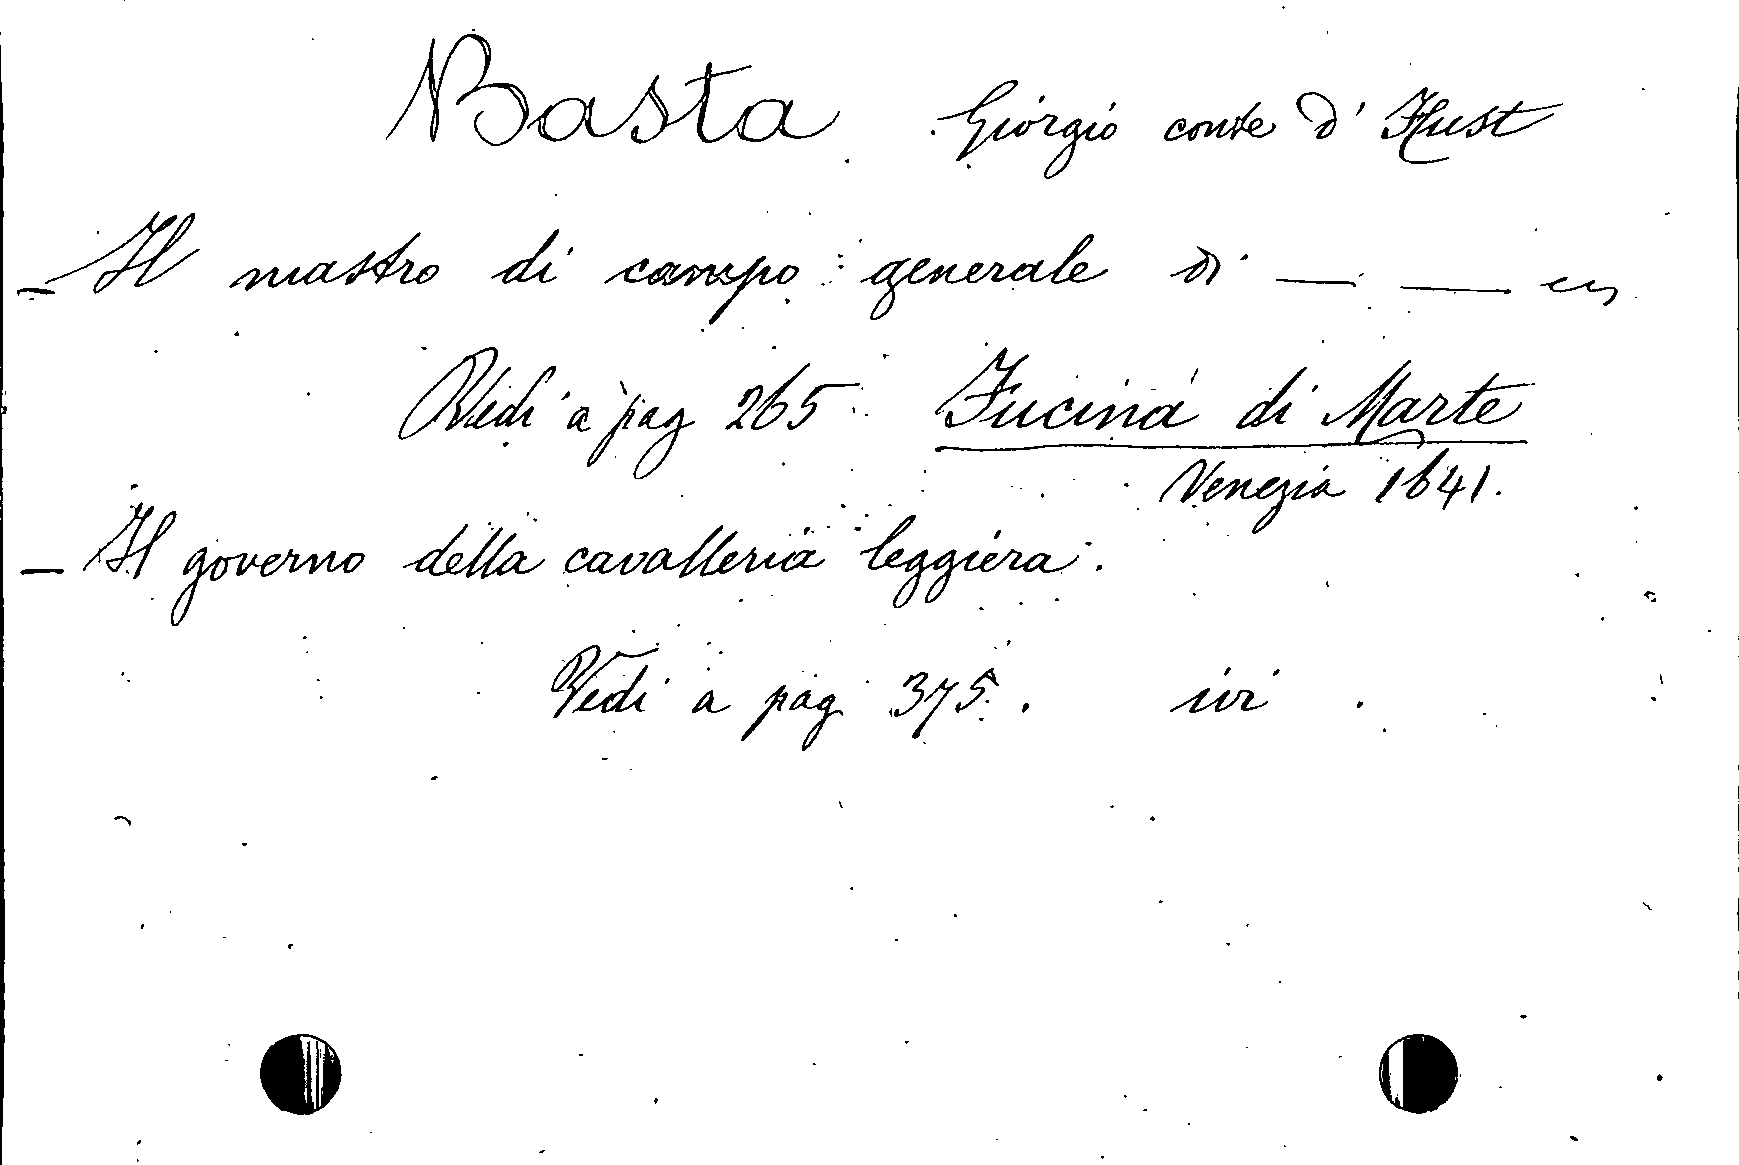 Basta Giorgio conte d' Hust
- Il mastro di campo generale di — —
Vedi a pag 265 Fucina di Marte
Venezia 1641.
- Il governo della cavalleria leggiera.
Vedi a pag 375. ivi